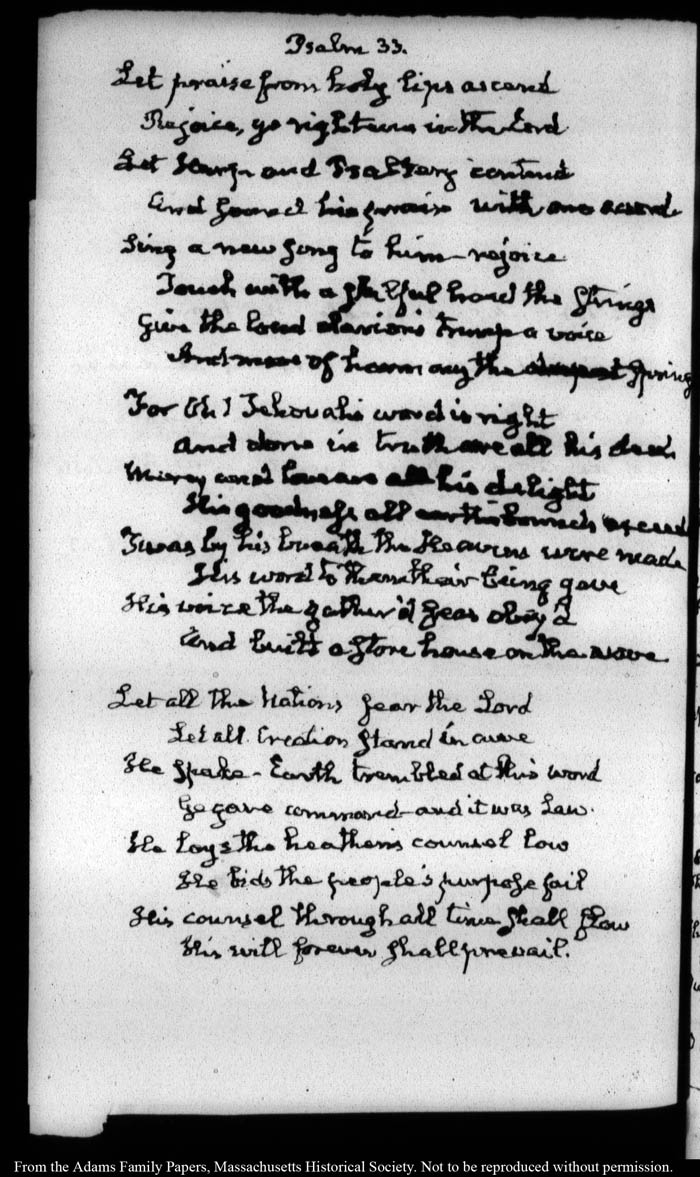 Psalm 33.
Let praise from holy lips ascend
Rejoice, ye righteous in the Lord
Let Harp and Psaltery contend
And sound his praise with one accord
Sing a new song to him – rejoice
Touch with a skilful hand the strings
Give the loud clarion's trump a voice
of harmony the Spring
For Oh! Jehovah's word is right
And done in truth are all his deeds
Mercy and love are all his delight
His goodness all earth's bounds exceed
Twas by his breath the Heavens were made
His word to them their being gave
His voice the gather'd seas obey'd
And built a store house on the wave
Let all the Nations fear the Lord
Let all Creation stand in awe
He spake – Earth trembled at his word
He gave command – and it was Law.
He lays the heathen's counsel low
He bids the people's purpose fail
His counsel through all time shall flow
His will forever shall prevail.
From the Adams Family Papers, Massachusetts Historical Society. Not to be reproduced without permission.